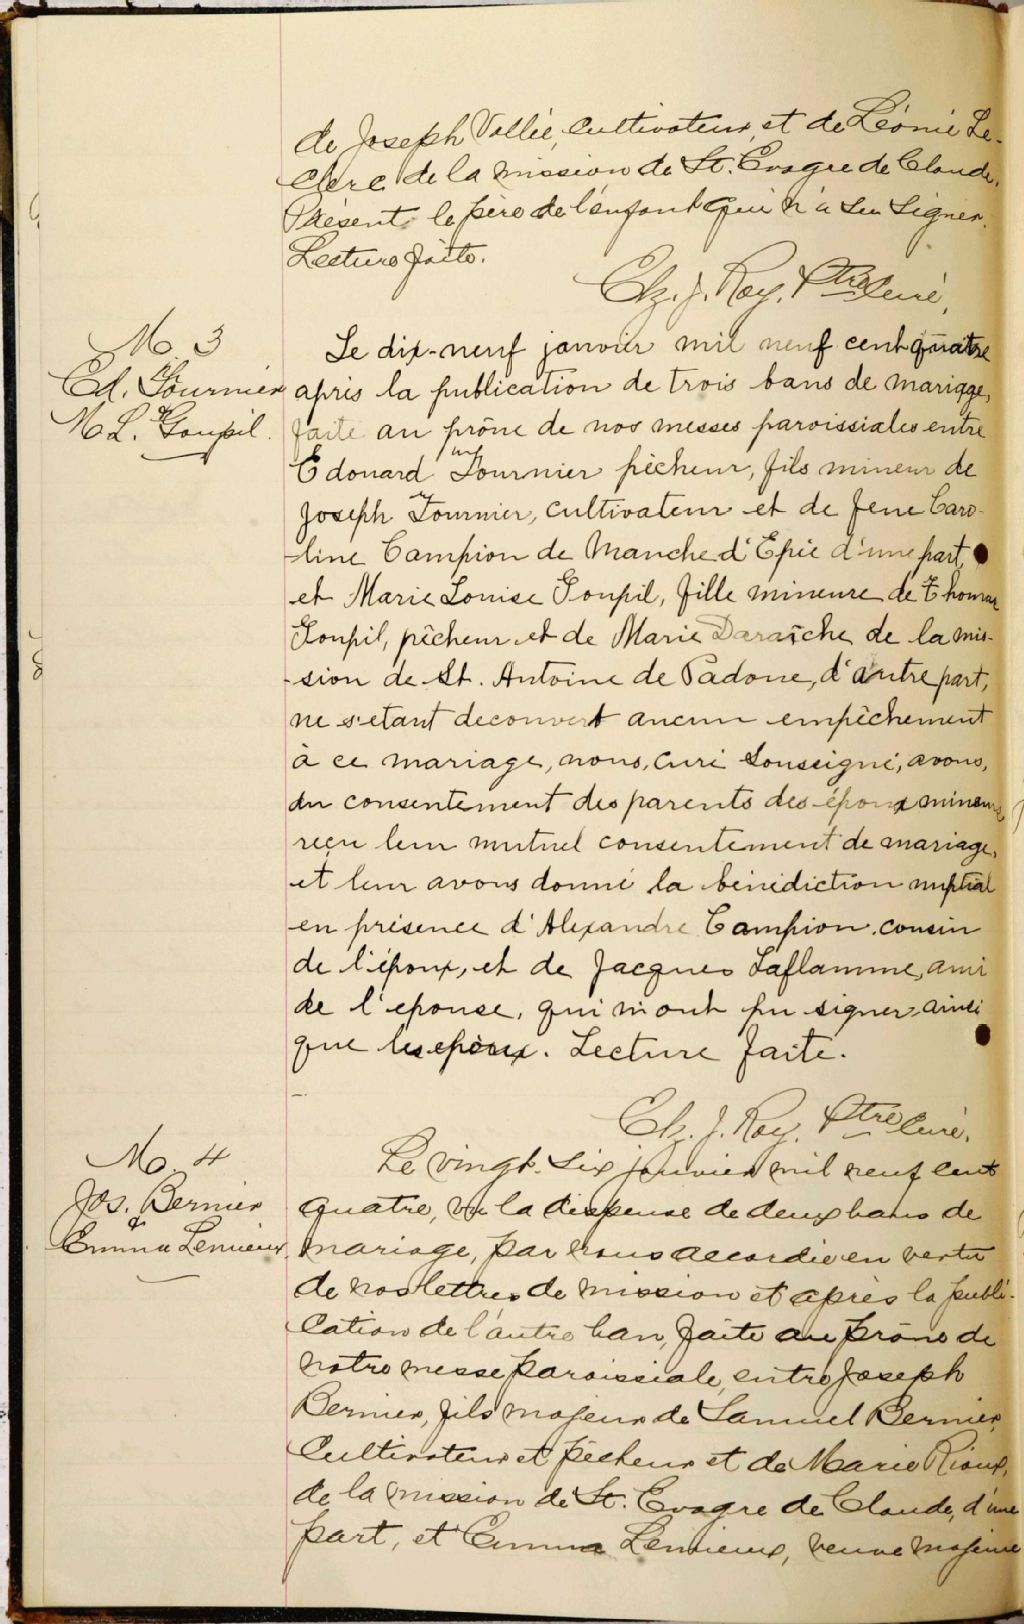 de Joseph Vallée, cultivateur, et de Léonie Le-
clerc de la mission de St. Evagre de Claude.
Présent le père de l'enfant qui n'a su signer.
Lecture faite.
Elz. J. Roy, Ptre Curé.
M. 3
Ed. Fournier
&
M L. Goupil.
Le dix-neuf janvier mil neuf cent quatre
après la publication de trois bans de mariage,
faite au prône de nos messes paroissiales entre
Edouard Fournier pêcheur, fils mineur de
Joseph Fournier, cultivateur et de feue Caro-
-line Campion de Manche d'Epée d'une part,
et Marie Louise Goupil, fille mineure de Thomas
Goupil, pêcheur et de Marie Daraîche de la mis-
-sion de St. Antoine de Padoue, d'autre part,
ne s'etant decouvert aucun empêchement
à ce mariage, nous, curé soussigné, avons,
du consentement des parents des époux mineurs,
reçu leur mutuel consentement de mariage,
et leur avons donné la bénédiction nuptial
en présence d'Alexandre Campion, cousin
de l'époux, et de Jacques Laflamme, ami
de l'epouse, qui n'ont pu signer, ainsi
que les epoux. Lecture faite.
Elz. J. Roy. Ptre Curé.
M. 4
Jos. Bernier
&
Emma Lemieux
Le vingt-six janvier mil neuf cent
quatre, vu la dispense de deux bans de
mariage, par nous accordée en vertu
de nos lettres de mission et après la publi-
cation de l'autre ban, faite au prône de
notre messe paroissiale, entre Joseph
Bernier, fils majeur de Samuel Bernier,
cultivateur et pêcheur et de Marie Rioux,
de la mission de St. Evagre de Claude, d'une
part, et Emma Lemieux, veuve majeure